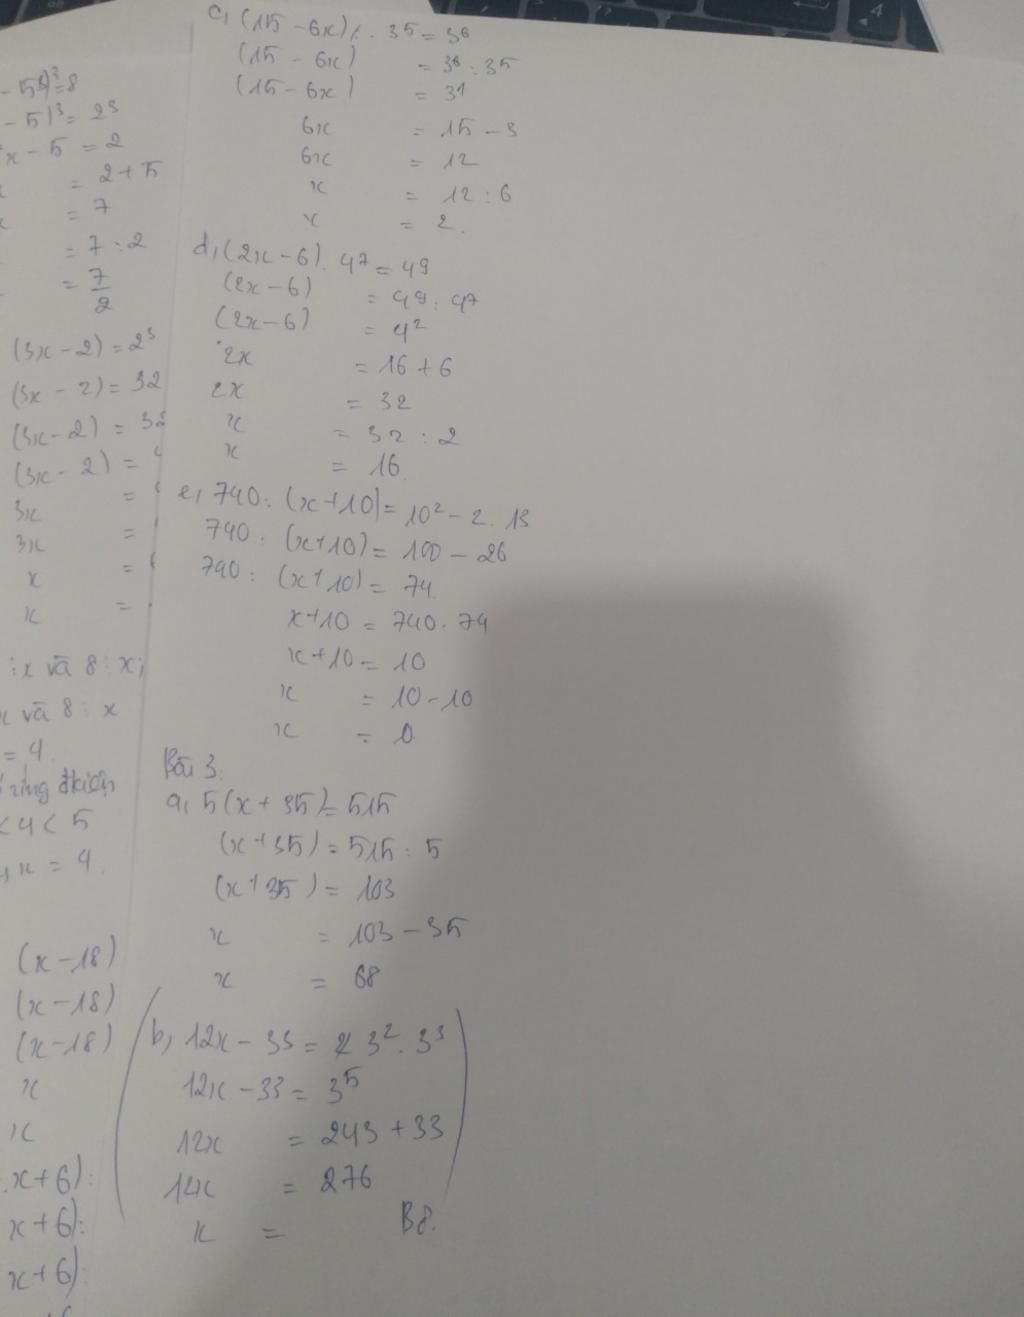 - 5)³ = 8
- 5)³ = 2³
x - 5 = 2
= 2 + 5
= 7
= 7 : 2
= 7/2
(3x - 2) = 2⁵
(3x - 2) = 32
(3x - 2) = 32
(3x - 2) =
3x =
3x =
x =
x =
: x và 8 : x;
x và 8 : x
= 4.
< 4 < 5
x = 4.
(x - 18)
(x - 18)
(x - 18)
x
x
x + 6) :
x + 6) :
x + 6) :
c, (15 - 6x) . 3⁵ = 3⁶
(15 - 6x) = 3⁶ : 3⁵
(15 - 6x) = 3¹
6x = 15 - 3
6x = 12
x = 12 : 6
x = 2.
d, (2x - 6) . 4⁷ = 4⁹
(2x - 6) = 4⁹ : 4⁷
(2x - 6) = 4²
2x = 16 + 6
2x = 32
x = 32 : 2
x = 16
e, 740 : (x + 10) = 10² - 2 . 13
740 : (x + 10) = 100 - 26
740 : (x + 10) = 74.
x + 10 = 740 : 74
x + 10 = 10
x = 10 - 10
x = 0
Bài 3.
a, 5(x + 35) = 515
(x + 35) = 515 : 5
(x + 35) = 103
x = 103 - 35
x = 68
b, 12x - 33 = 3² . 3³
12x - 33 = 3⁵
12x = 243 + 33
12x = 276
x =
B8.